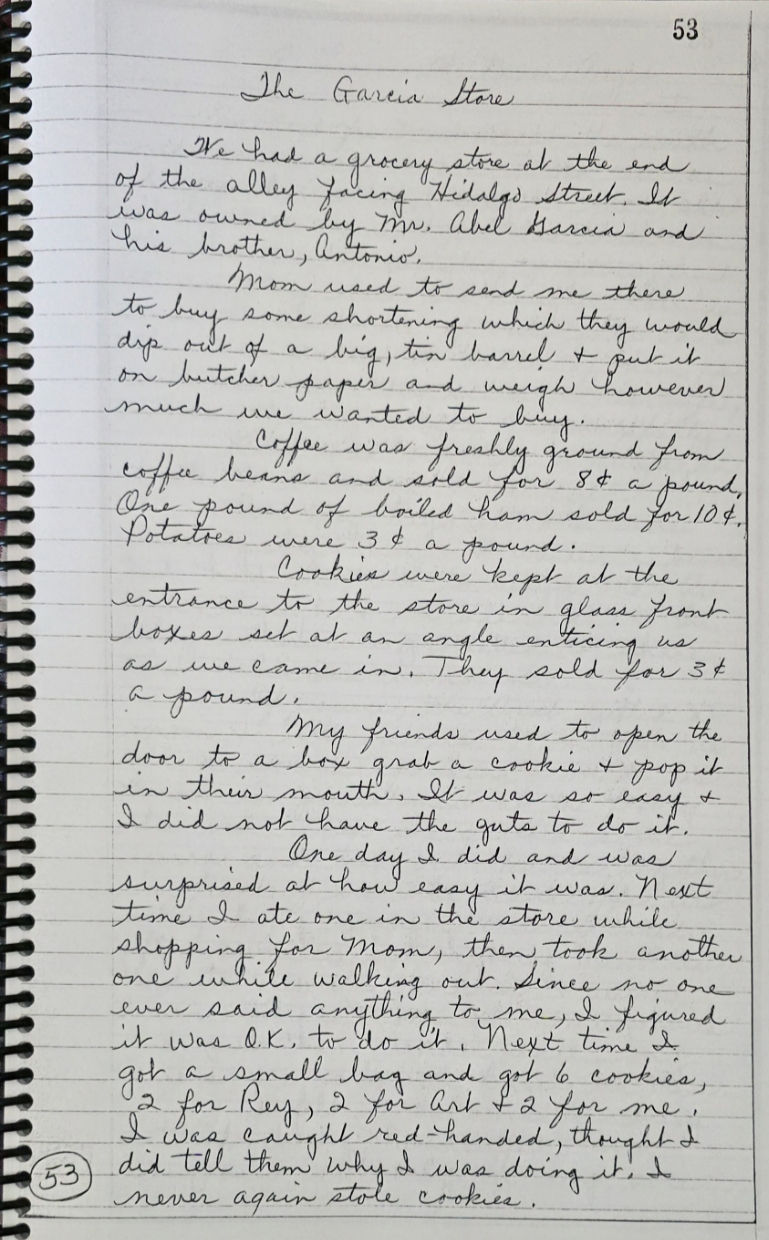 53
The Garcia Store
We had a grocery store at the end
of the alley facing Hidalgo Street. It
was owned by Mr. Abel Garcia and
his brother, Antonio.
Mom used to send me there
to buy some shortening which they would
dip out of a big, tin barrel + put it
on butcher paper and weigh however
much we wanted to buy.
Coffee was freshly ground from
coffee beans and sold for 8¢ a pound.
One pound of boiled ham sold for 10¢.
Potatoes were 3¢ a pound.
Cookies were kept at the
entrance to the store in glass front
boxes set at an angle enticing us
as we came in. They sold for 3¢
a pound.
My friends used to open the
door to a box grab a cookie + pop it
in their mouth. It was so easy +
I did not have the guts to do it.
One day I did and was
surprised at how easy it was. Next
time I ate one in the store while
shopping for Mom, then took another
one while walking out. Since no one
ever said anything to me, I figured
it was O.K. to do it. Next time I
got a small bag and got 6 cookies,
2 for Rey, 2 for Art + 2 for me.
I was caught red-handed, thought I
did tell them why I was doing it. I
never again stole cookies.
53